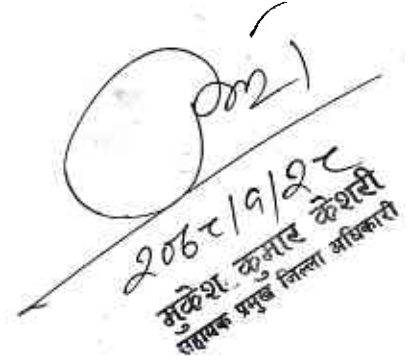 २०७८|९|२८
मुकेश कुमार केशरी
सहायक प्रमुख जिल्ला अधिकारी